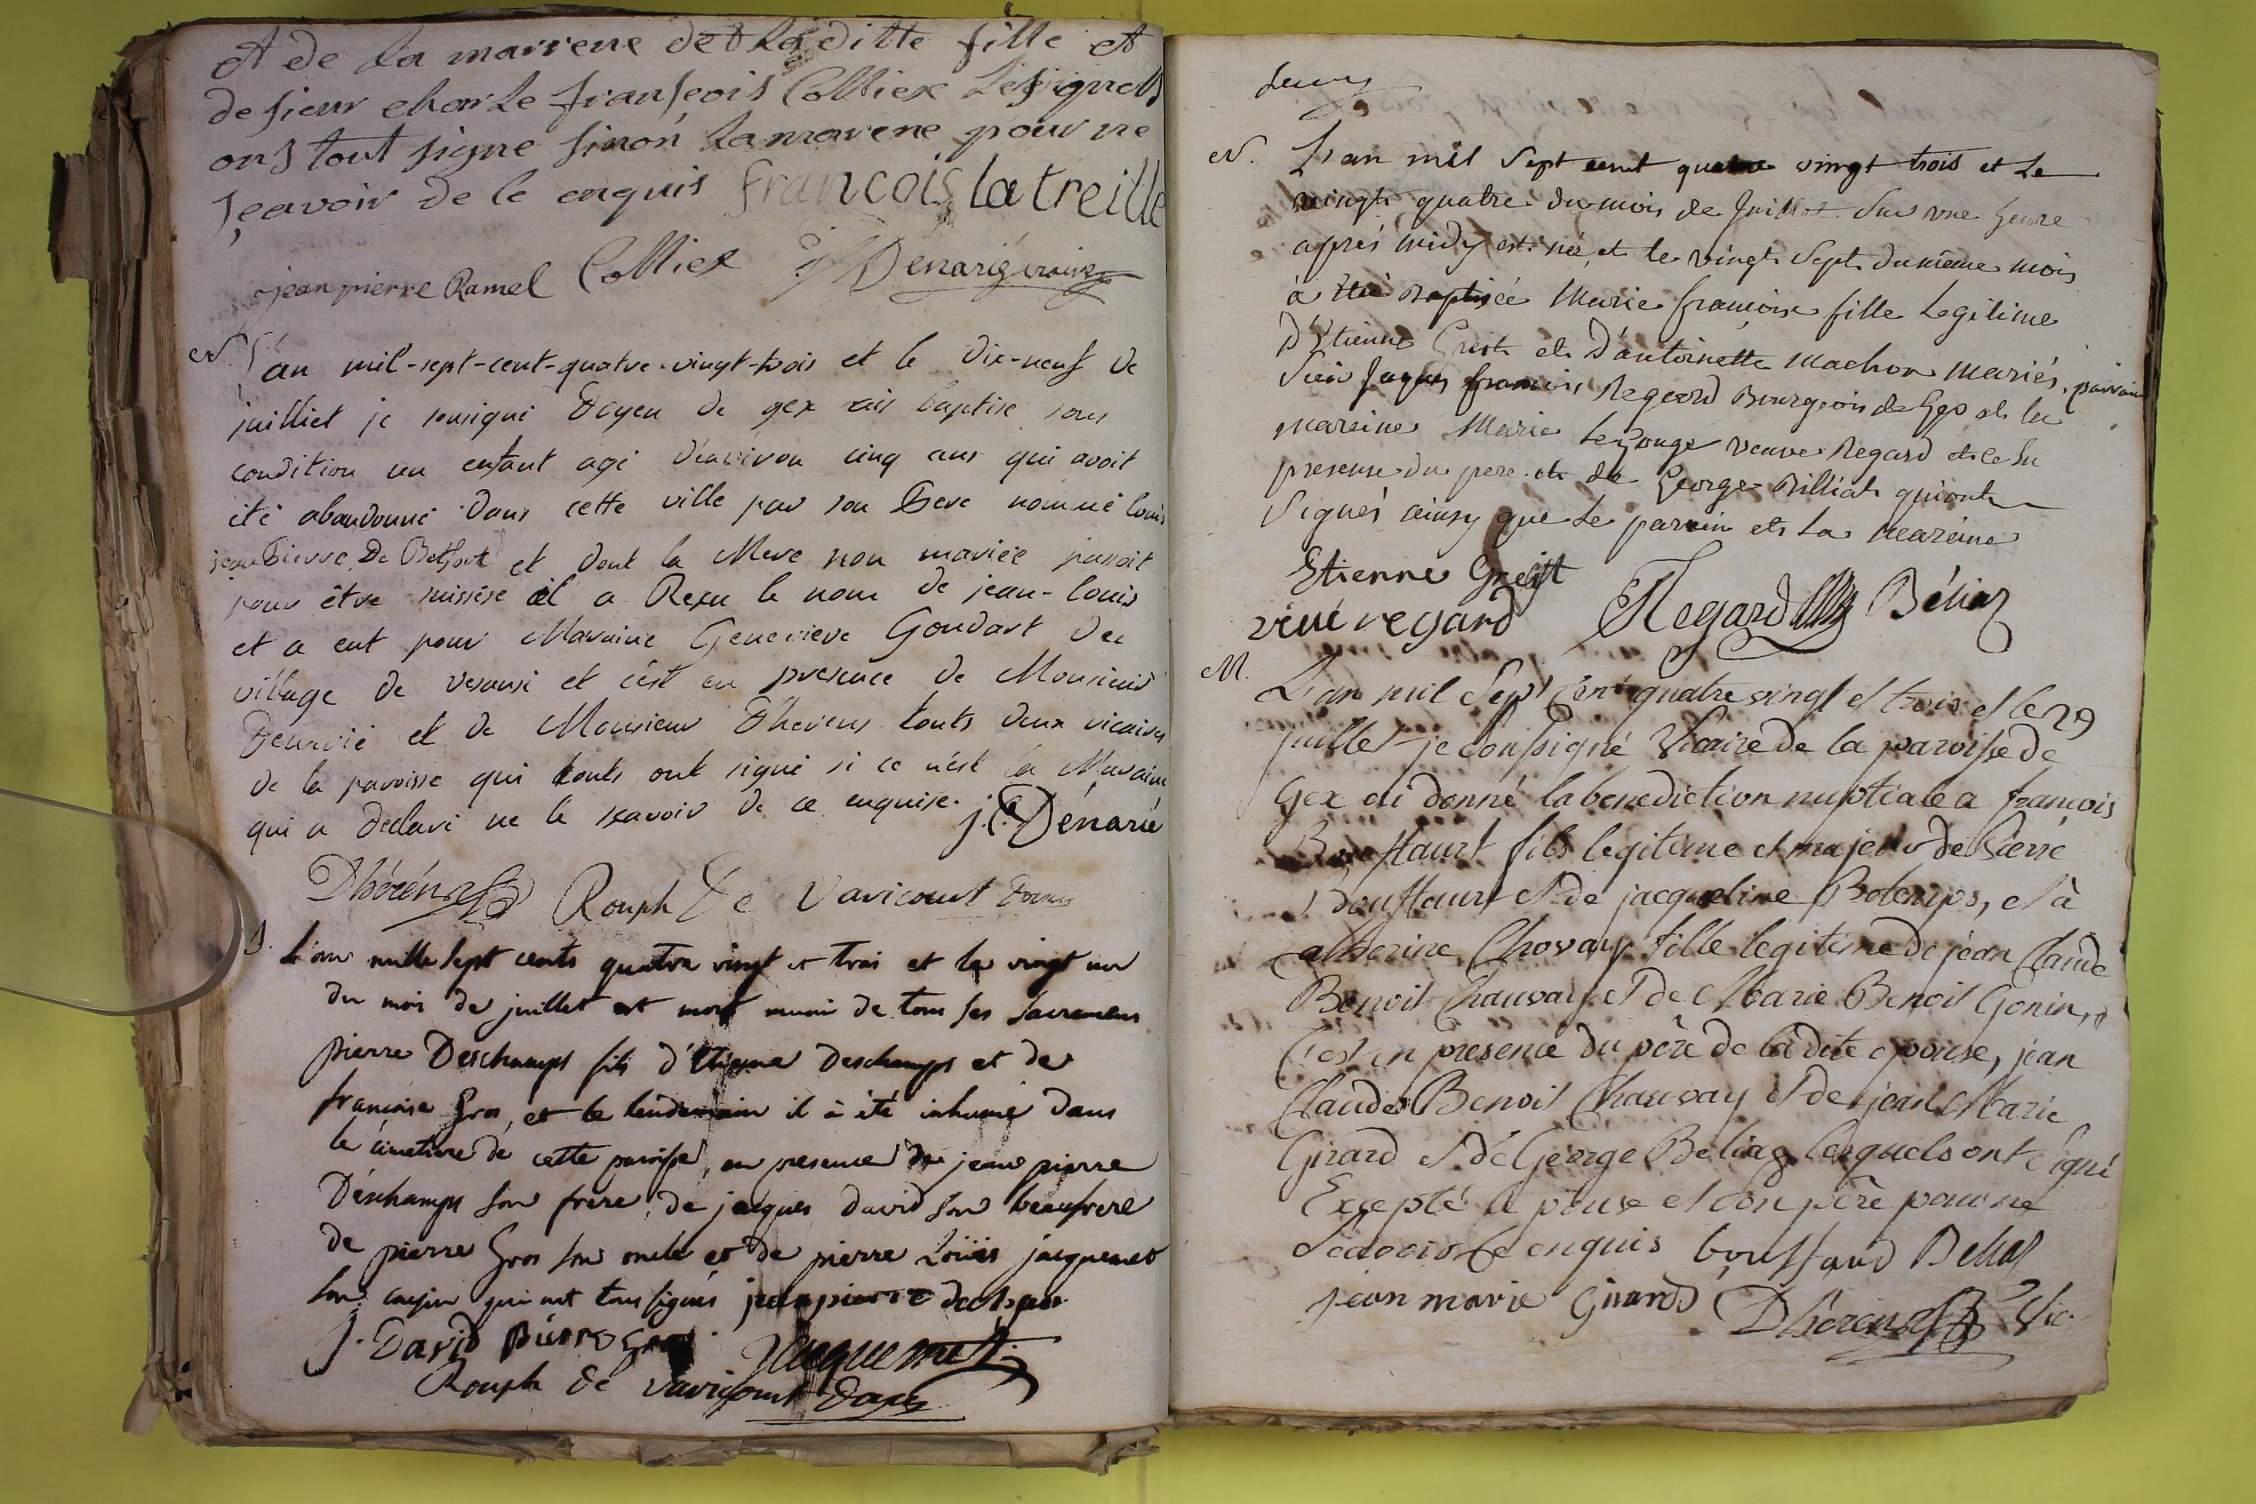 et de la mariene de la ditte fille et
de sieur charle franseois Colliex lesiquells
ons tout signe sinon la marene pour ne
sçeavoir de le enquis francois la treille
jean pierre Ramel Colliex Denarié vicaire
N. L'an mil-sept-cent-quatre-vingt-trois et le dix-neuf de
juilliet je sousigné Doyen de gex ais baptise sous
condition un enfant agé d'environ cinq ans qui avoit
été abandonné dans cette ville par son Pere nommé louis
jean Pierre De Betfort et dont la Mere non mariée passoit
pour être suissese il a Reçu le nom de jean-louis
et a eut pour Maraine Genevieve Goudart du
village de vesansi et c'est en presence de Monsieur
Denarié et de Monsieur Dherens touts deux vicaires
de la paroisse qui touts ont signé si ce n'est la Maraine
qui a declaré ne le sçavoir de ce enquise. j. C. Dénarié
Dhéréns Rouph De Varicourt Doyen
L'an mille sept cents quatre vingt et trois et le vingt un
du mois de juillet est mort muni de tous ses sacremens
pierre Deschamps fils d'Etienne Deschamps et de
francoise Gros, et le lendemain il à été inhumé dans
le cimetiere de cette paroisse, en presence de jean pierre
Déschamps son frere, de jacques david son beaufrere
de pierre Gros son oncle et de pierre Loüis jacquemet
son cousin qui ont tous signés jean pierre dechan
J. David Pierre Gros Jacquemet
Rouph de Varicourt Doyen
N. L'an mil Sept cent quatre vingt trois et le
vingt quatre du mois de Juillet Sur une heure
après midy est née, et le vingt Sept du même mois
à été Baptisée Marie françoise fille Legitime
D'Etienne Greist et D'antoinette Machon Mariés, parrain
Sieur Jaques francois Regard Bourgeois de Gex et la
mareine Marie LeGouge veuve Regard et ce en
presence du pere et de George Billiat qui ont
Signés ainsy que Le parrein et La Mareine
Etienne Greist
veuve regard Regard Béliaz
M. L'an mil Sept Cent quatre vingt et trois et le 29
juillet je Soussigné Vicaire de la paroisse de
Gex ai donné la benediction nuptiale a francois
Boufflaurt fils legitime et majeur de Pierre
Bouftaurt et de jacqueline Bolemps, et à
Catherine Chovay fille legitime de jean Claude
Benoit Chauvay et de Marie Benoit Gonin,
C'est en presence du père de la dite epouse, jean
Claude Benoit Chauvay et de jean Marie
Girard et de George Beliaz lesquels ont Signé
Excepté l'epouse et son père pour ne
Scavoir de enquis bouffaud Beliaz
jean marie Girard Dhérens Vic.